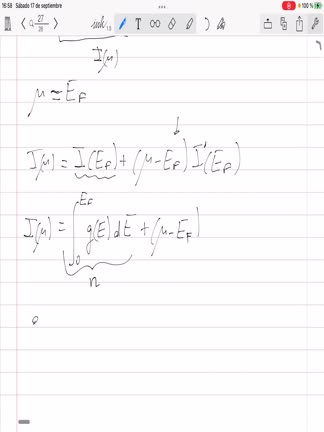 16:58 Sábado 17 de septiembre 100 %
27
28
I(μ)
μ ≃ E_F
I(μ) = I(E_F) + (μ-E_F) I'(E_F)
I(μ) = ∫_0^{E_F} g(E) dE + (μ-E_F)
n